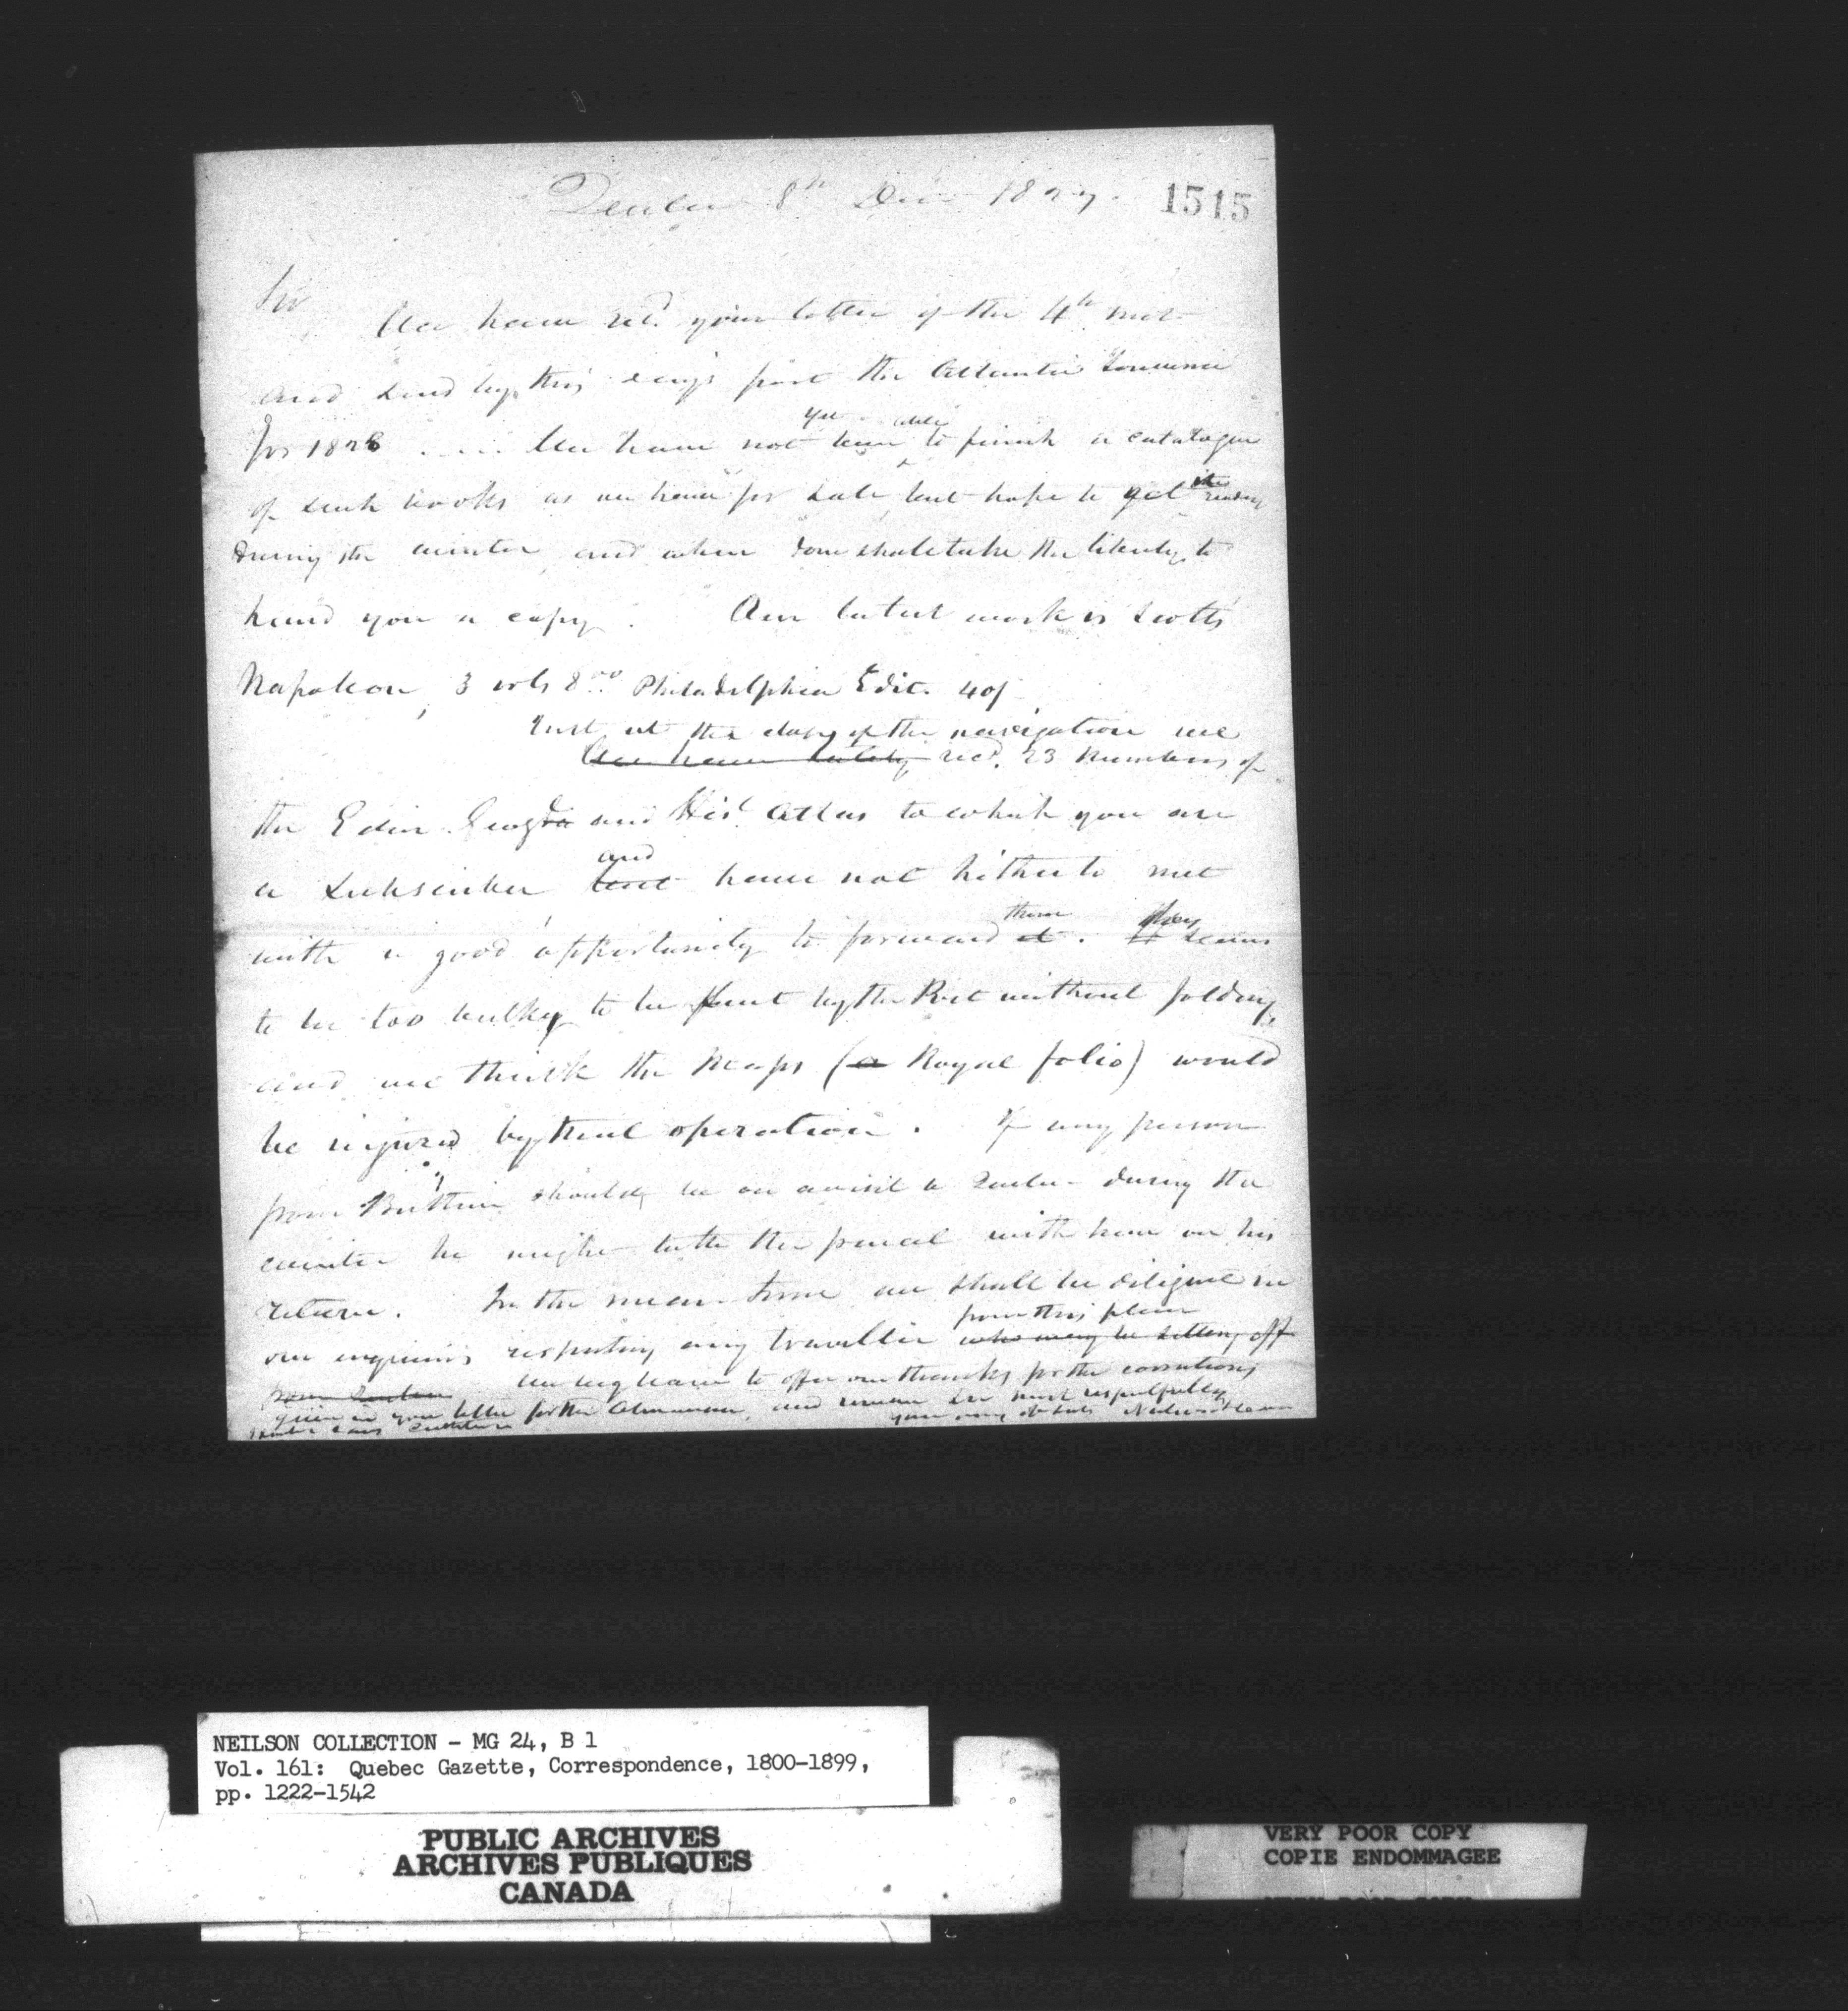 Quebec 8th Decr 1827.
1515
Sir
We have recd. your letter of the 4th inst
and send by this day's post the Atlantic Souvenir
for 1828 .... We have not yet been able to finish a catalogue
of such books as we have for sale, but hope to get it ready
during the winter and when done shall take the liberty to
hand you a copy. Our latest work is Scott's
Napoleon, 3 vols 8vo Philadelphia Edit. 40/
Just at the close of the navigation we
We have lately recd. 23 Numbers of
the Edin. Geogl and Hisl Atlas to which you are
a Subscriber but and have not hitherto met
with a good opportunity to forward it them. It They seems
to be too bulky to be sent by the Post without folding,
and we think the Maps (a Royal folio) would
be injured by that operation. If any person
from should be on a visit to Quebec during the
winter he might take the parcel with him on his
return. In the mean time we shall be diligent in
our inquiries respecting any traveller from this place who may be setting off
from Quebec We beg leave to offer our thanks for the corrections
given in your letter for the Almanac, and remain Sir most respectfully
your very obt Servts Neilson & Cowan
NEILSON COLLECTION - MG 24, B 1
Vol. 161: Quebec Gazette, Correspondence, 1800-1899,
pp. 1222-1542
PUBLIC ARCHIVES
ARCHIVES PUBLIQUES
CANADA
VERY POOR COPY
COPIE ENDOMMAGEE